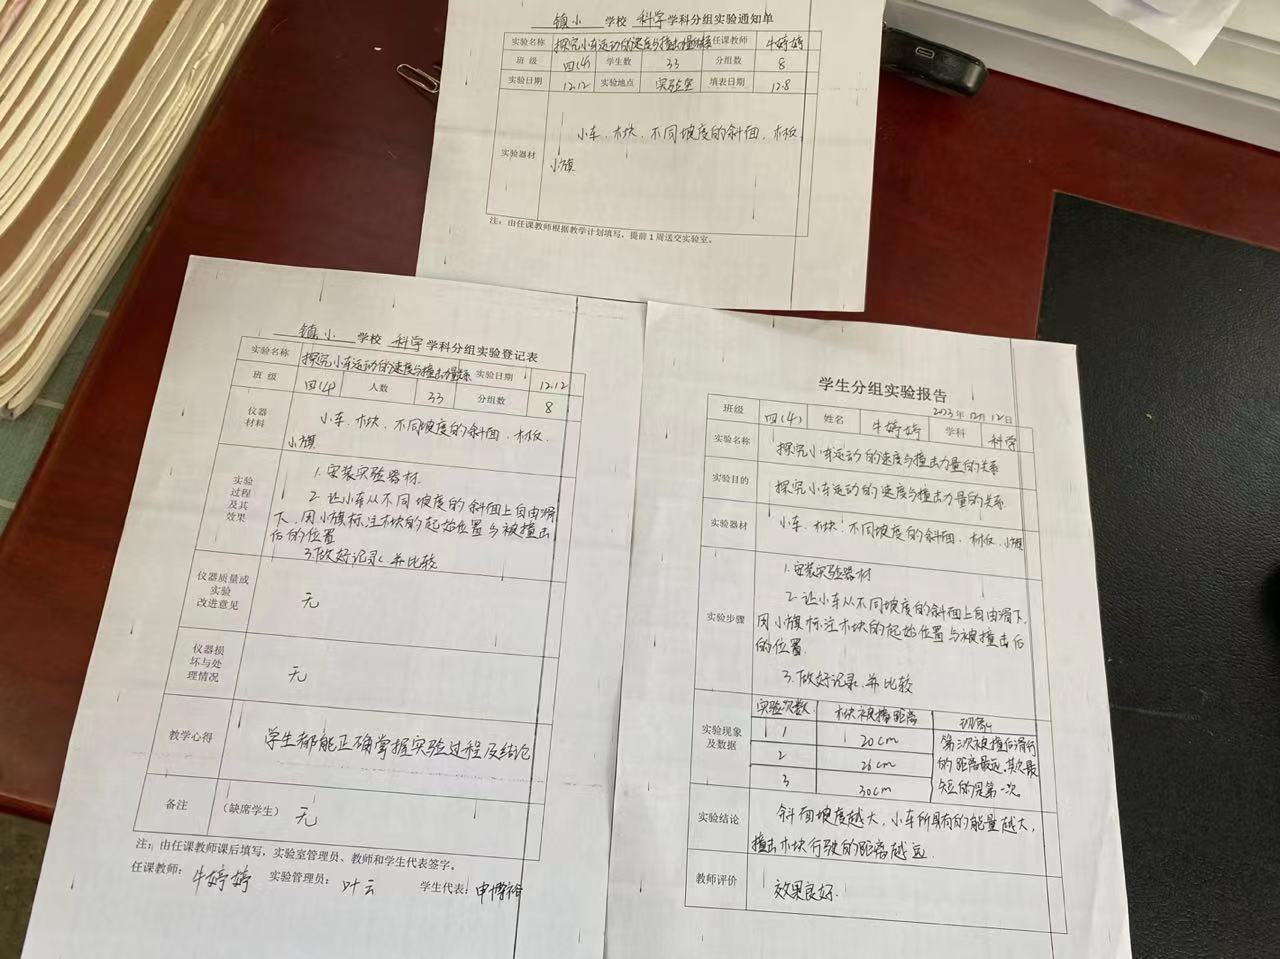 镇小 学校 科学 学科分组实验通知单
实验名称 探究小车运动的速度与撞击力量的关系 任课教师 牛婷婷
班 级 四(4) 学生数 33 分组数 8
实验日期 12.12 实验地点 实验室 填表日期 12.8
实验器材 小车、木块、不同坡度的斜面、木板、
小旗
注：由任课教师根据教学计划填写，提前 1 周送交实验室。
镇小 学校 科学 学科分组实验登记表
实验名称 探究小车运动的速度与撞击力量关系 实验日期 12.12
班 级 四(4) 人数 33 分组数 8
仪器
材料
小车、木块、不同坡度的斜面、木板、
小旗
实验
过程
及其
效果
1.安装实验器材.
2.让小车从不同坡度的斜面上自由滑
下,用小旗标注木块的起始位置与被撞击
后的位置
3.做好记录、并比较
仪器质量或
实验
改进意见
无
仪器损
坏与处
理情况
无
教学心得 学生都能正确掌握实验过程及结论
备注 （缺席学生） 无
注：由任课教师课后填写，实验室管理员、教师和学生代表签字。
任课教师：牛婷婷 实验管理员：叶云 学生代表：申博
学生分组实验报告
2023年12月12日
班级 四(4) 姓名 牛婷婷 学科 科学
实验名称 探究小车运动的速度与撞击力量的关系
实验目的 探究小车运动的速度与撞击力量的关系
实验器材 小车、木块、不同坡度的斜面、木板、小旗
实验步骤
1.安装实验器材
2.让小车从不同坡度的斜面上自由滑下,
用小旗标注木块的起始位置与被撞击后
的位置.
3.做好记录、并比较
实验现象
及数据
实验次数 木块被撞距离 现象
1 20cm
2 26cm
3 30cm
第三次被撞后滑行
的距离最远,其次最
短的是第一次.
实验结论 斜面坡度越大,小车所具有的能量越大,
撞击木块行驶的距离越远.
教师评价 效果良好.